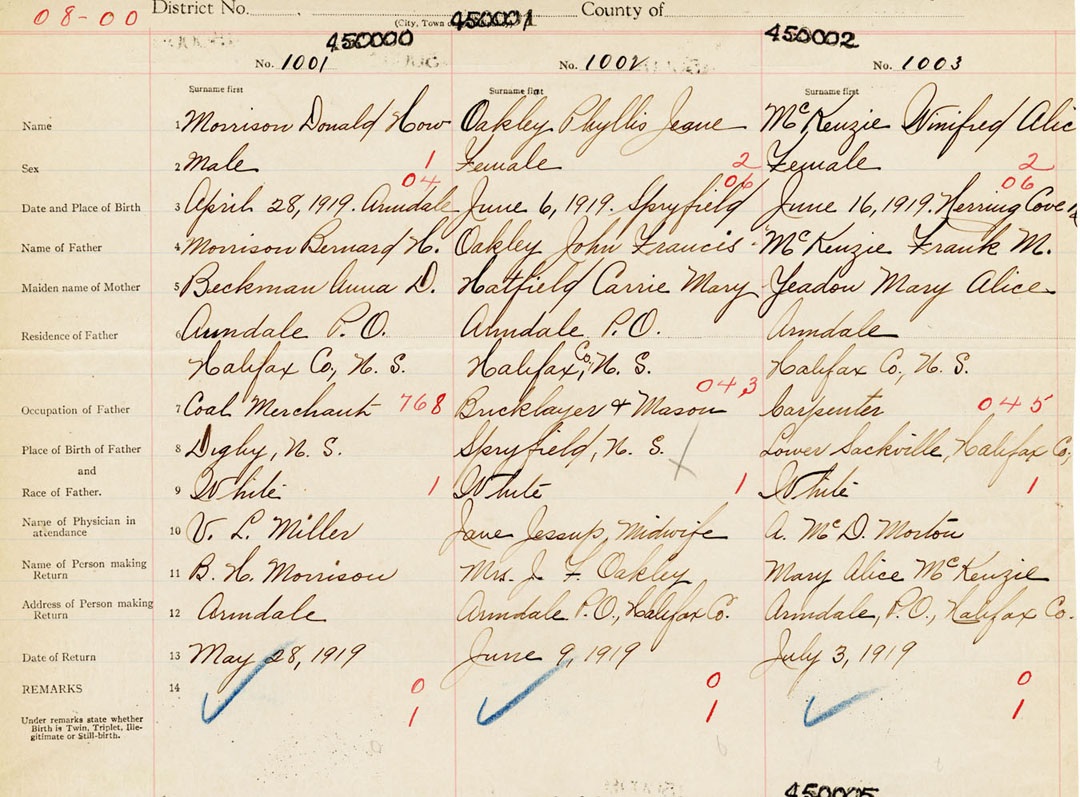 08-00 District No. County of
(City, Town
450000 450001 450002
No. 1001 No. 1002 No. 1003
Surname first Surname first Surname first
Name 1 Morrison Donald How Oakley Phyllis Jeane McKenzie Winifred Alic
Sex 2 Male 1 Female 2 Female 2
04 06 06
Date and Place of Birth 3 April 28, 1919. Armdale June 6, 1919. Spryfield June 16, 1919. Herring Cove
Name of Father 4 Morrison Bernard H. Oakley John Francis McKenzie Frank M.
Maiden name of Mother 5 Beckman Anna D. Hatfield Carrie Mary Yeadon Mary Alice
Residence of Father 6 Armdale P.O. Armdale P.O. Armdale
Halifax Co., N. S. Halifax Co., N. S. Halifax Co., N. S.
Occupation of Father 7 Coal Merchant 768 Bricklayer & Mason 043 Carpenter 045
Place of Birth of Father 8 Digby, N. S. Spryfield, N. S. Lower Sackville, Halifax Co,
and
Race of Father. 9 White 1 White 1 White 1
Name of Physician in attendance 10 V. L. Miller Jane Jessup, Midwife A. McD. Morton
Name of Person making Return 11 B. H. Morrison Mrs. J. F. Oakley Mary Alice McKenzie
Address of Person making Return 12 Armdale Armdale P.O., Halifax Co. Armdale, P.O., Halifax Co.
Date of Return 13 May 28, 1919 June 9, 1919 July 3, 1919
REMARKS 14 0 0 0
Under remarks state whether 1 1 1
Birth is Twin, Triplet, Ille-
gitimate or Still-birth.
450005